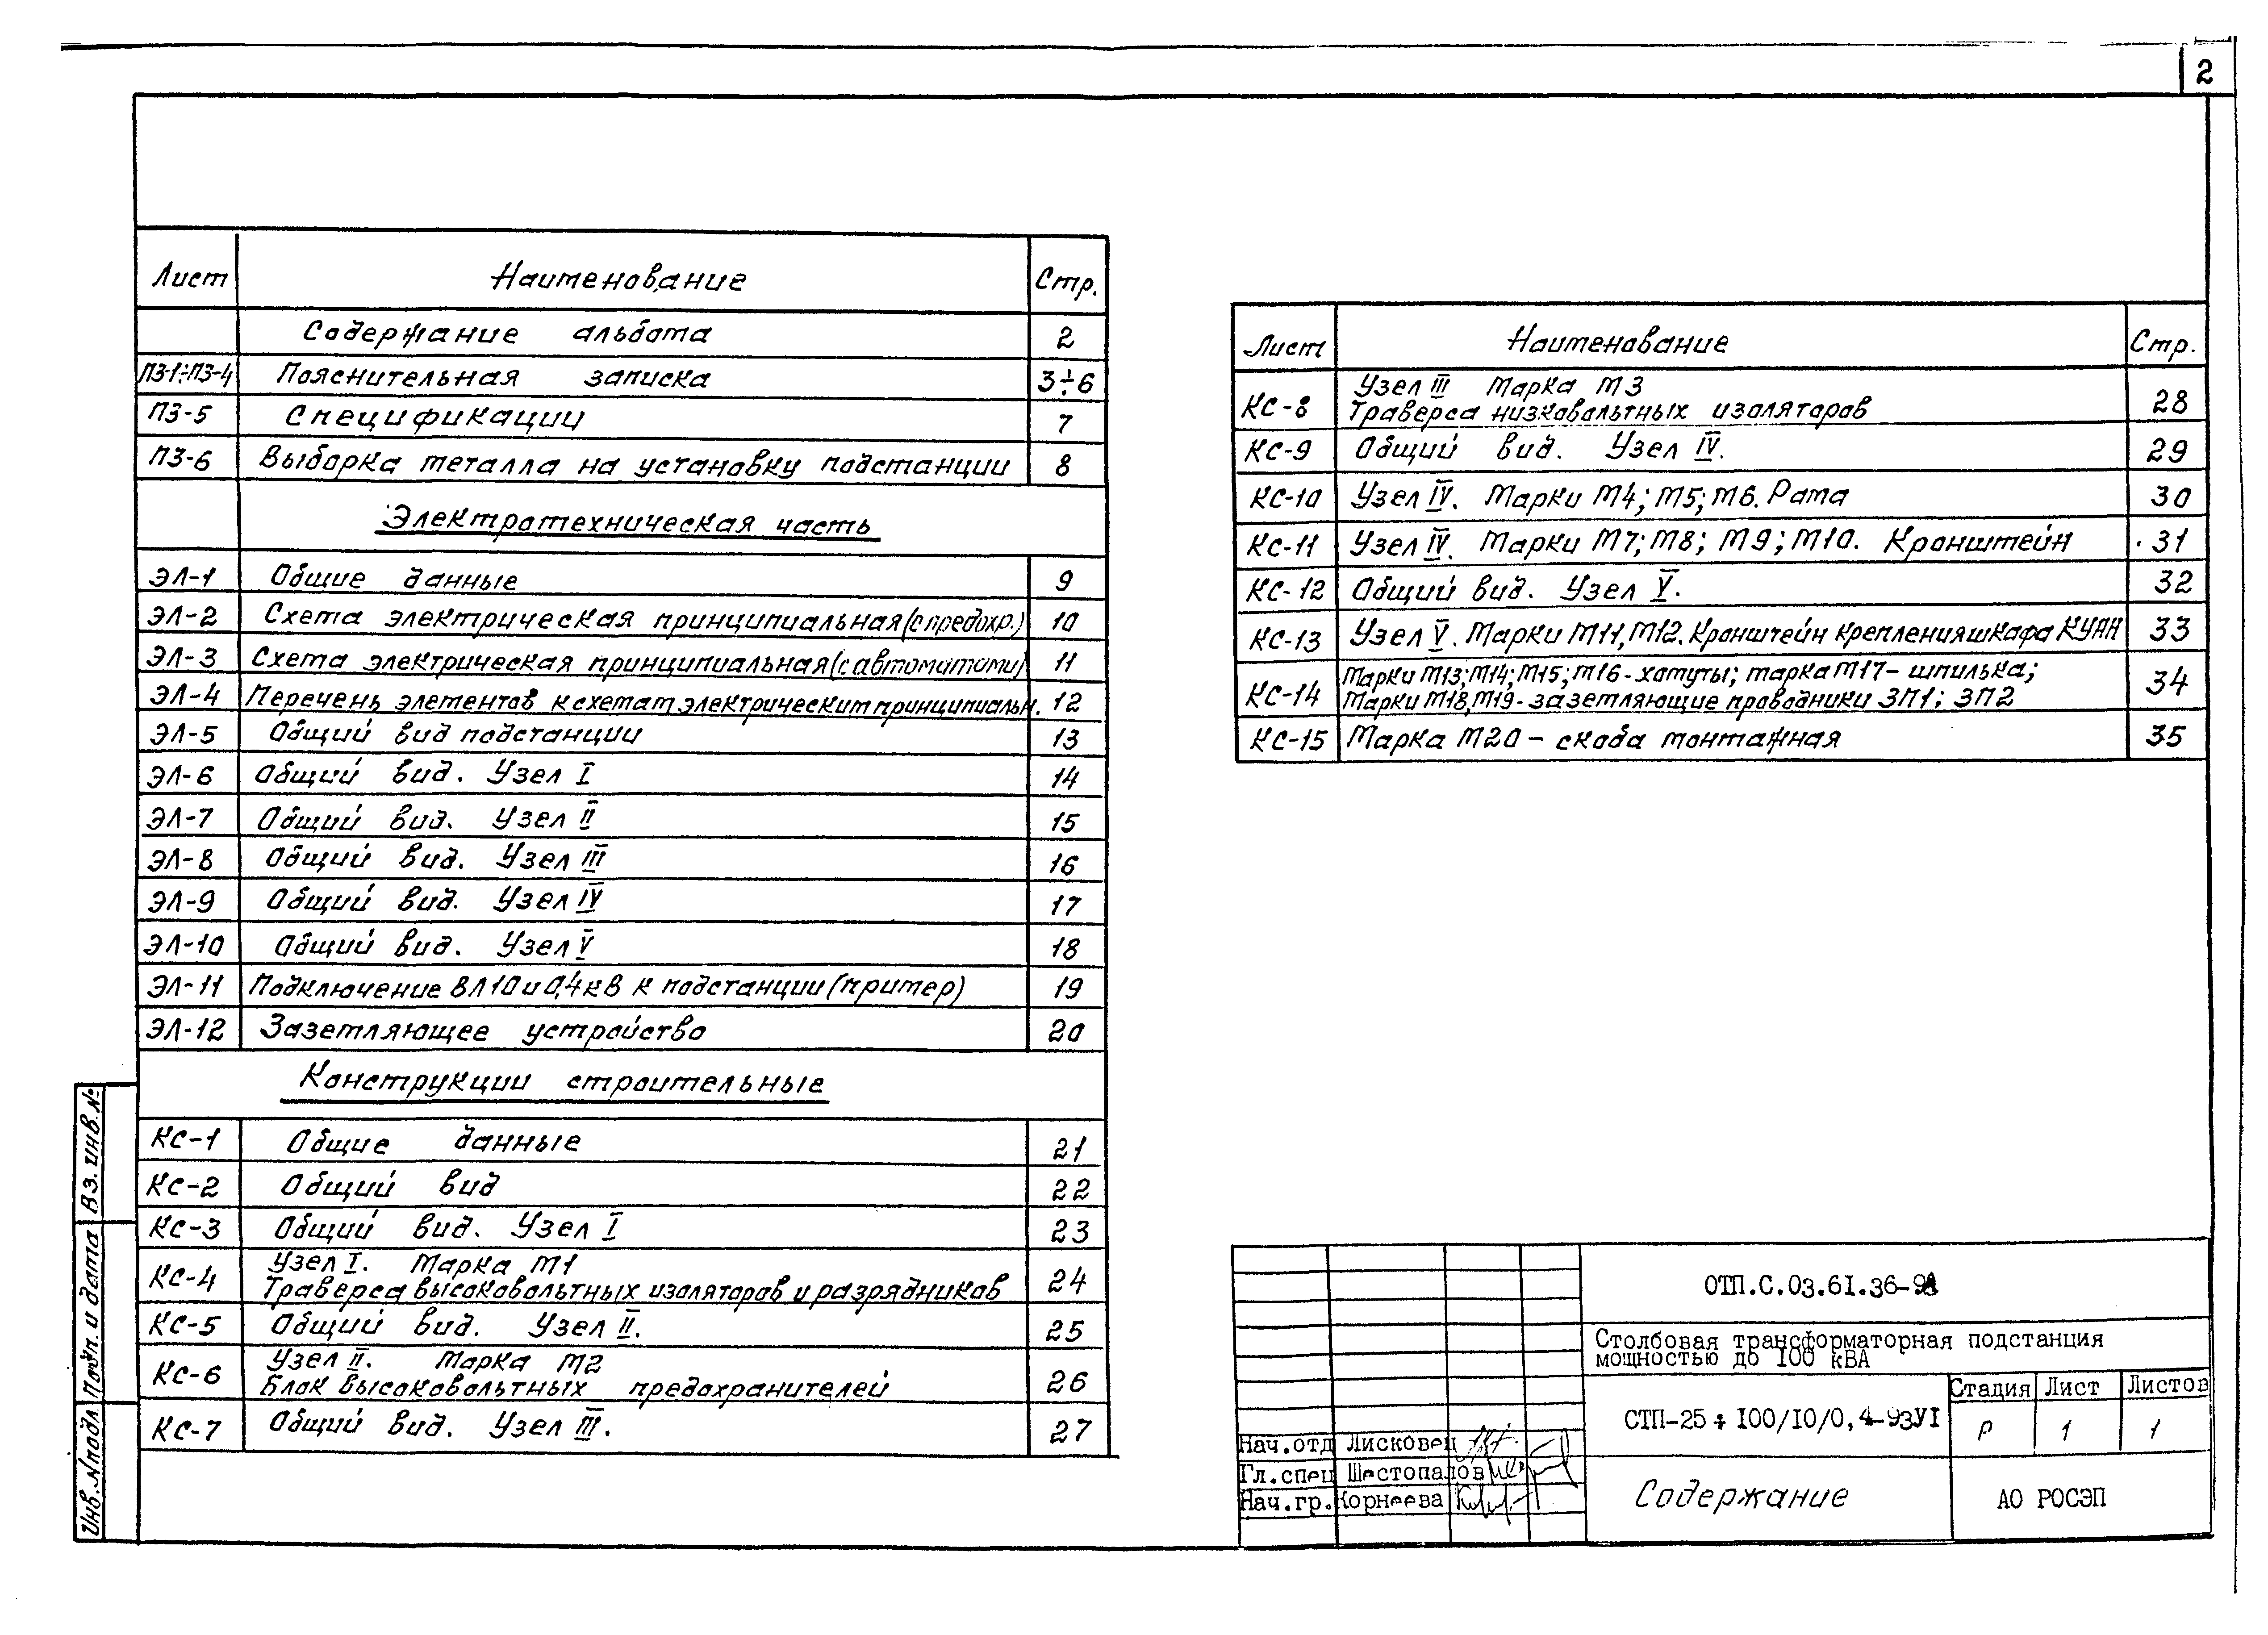 2
Лист Наименование Стр.
Содержание альбома 2
ПЗ-1÷ПЗ-4 Пояснительная записка 3÷6
ПЗ-5 Спецификации 7
ПЗ-6 Выборка металла на установку подстанции 8
Электротехническая часть
ЭЛ-1 Общие данные 9
ЭЛ-2 Схема электрическая принципиальная (с предохр.) 10
ЭЛ-3 Схема электрическая принципиальная (с автоматами) 11
ЭЛ-4 Перечень элементов к схемам электрическим принципиальн. 12
ЭЛ-5 Общий вид подстанции 13
ЭЛ-6 Общий вид. Узел I 14
ЭЛ-7 Общий вид. Узел II 15
ЭЛ-8 Общий вид. Узел III 16
ЭЛ-9 Общий вид. Узел IV 17
ЭЛ-10 Общий вид. Узел V 18
ЭЛ-11 Подключение ВЛ 10 и 0,4 кВ к подстанции (пример) 19
ЭЛ-12 Заземляющее устройство 20
Конструкции строительные
КС-1 Общие данные 21
КС-2 Общий вид 22
КС-3 Общий вид. Узел I 23
КС-4 Узел I. Марка М1 24
Траверса высоковольтных изоляторов и разрядников
КС-5 Общий вид. Узел II. 25
КС-6 Узел II. Марка М2 26
Блок высоковольтных предохранителей
КС-7 Общий вид. Узел III. 27
Лист Наименование Стр.
КС-8 Узел III Марка М3 28
Траверса низковольтных изоляторов
КС-9 Общий вид. Узел IV. 29
КС-10 Узел IV. Марки М4; М5; М6. Рама 30
КС-11 Узел IV. Марки М7; М8; М9; М10. Кронштейн 31
КС-12 Общий вид. Узел V. 32
КС-13 Узел V. Марки М11, М12. Кронштейн крепления шкафа КУАН 33
КС-14 Марки М13; М14; М15; М16 - хомуты; марка М17 - шпилька; 34
Марки М18, М19 - заземляющие проводники ЗП1; ЗП2
КС-15 Марка М20 - скоба монтажная 35
Вз. инв. №
Подп. и дата
Инв. № подл.
ОТП.С.03.61.36-
Столбовая трансформаторная подстанция
мощностью до 100 кВА
СТП-25÷100/10/0,4-93У1
Стадия Лист Листов
Р 1 1
Нач.отд Лисковец
Гл.спец Шестопалов
Нач.гр. Корнеева
Содержание
АО РОСЭП